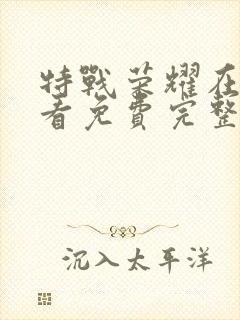 特戰荣耀在
看免費完整
沉入太平洋